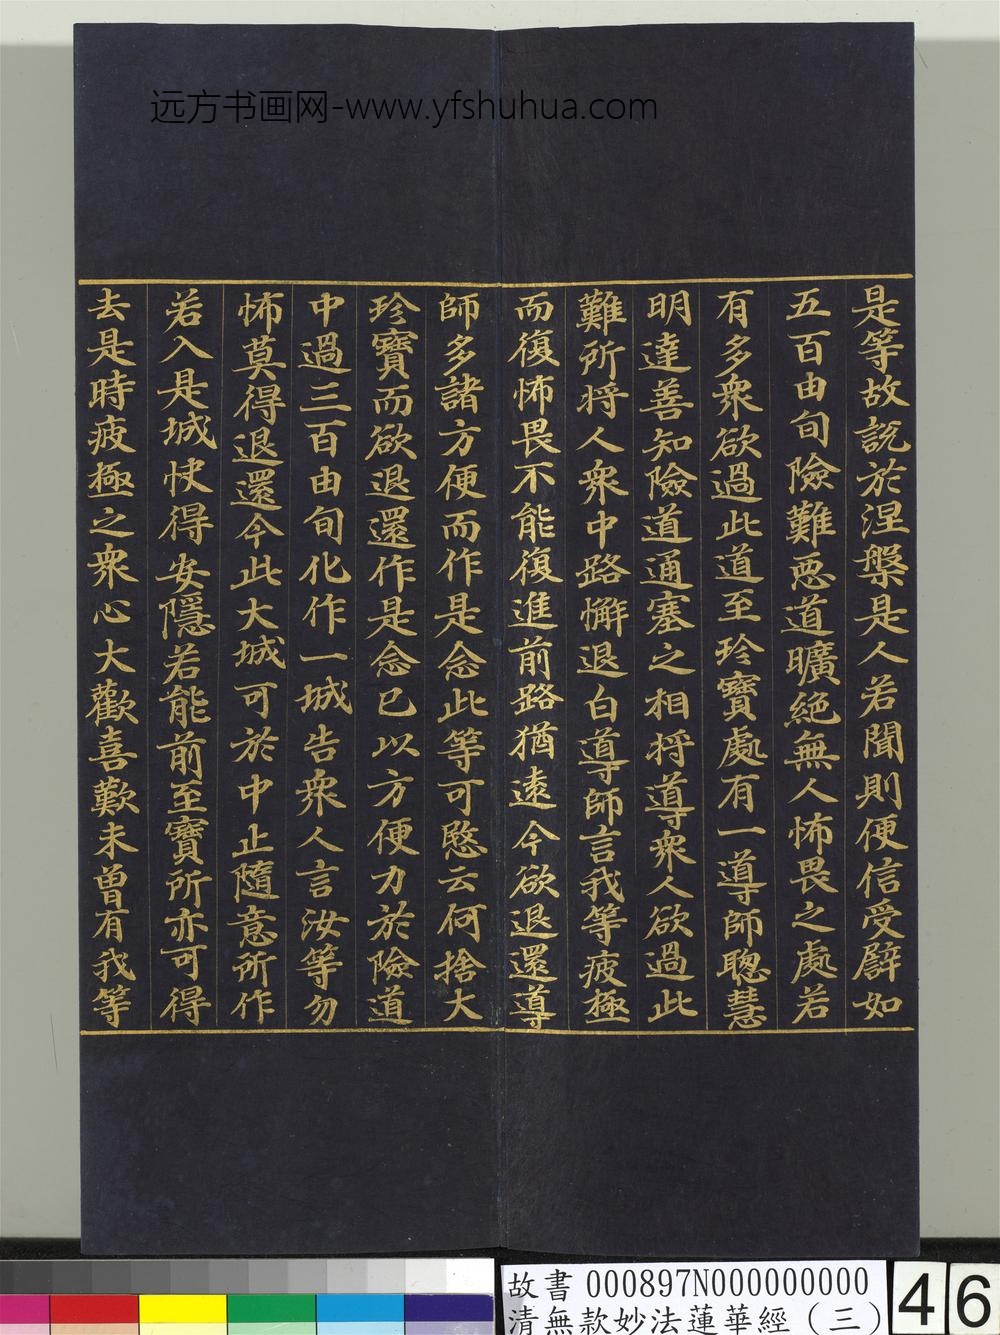 远方书画网-www.yfshuhua.com
是等故說於涅槃是人若聞則便信受譬如
五百由旬險難惡道曠絕無人怖畏之處若
有多衆欲過此道至珍寶處有一導師聰慧
明達善知險道通塞之相將導衆人欲過此
難所將人衆中路懈退白導師言我等疲極
而復怖畏不能復進前路猶遠今欲退還導
師多諸方便而作是念此等可愍云何捨大
珍寶而欲退還作是念已以方便力於險道
中過三百由旬化作一城告衆人言汝等勿
怖莫得退還今此大城可於中止隨意所作
若入是城快得安隱若能前至寶所亦可得
去是時疲極之衆心大歡喜歎未曾有我等
故書 000897N000000000
清無款妙法蓮華經（三）
46